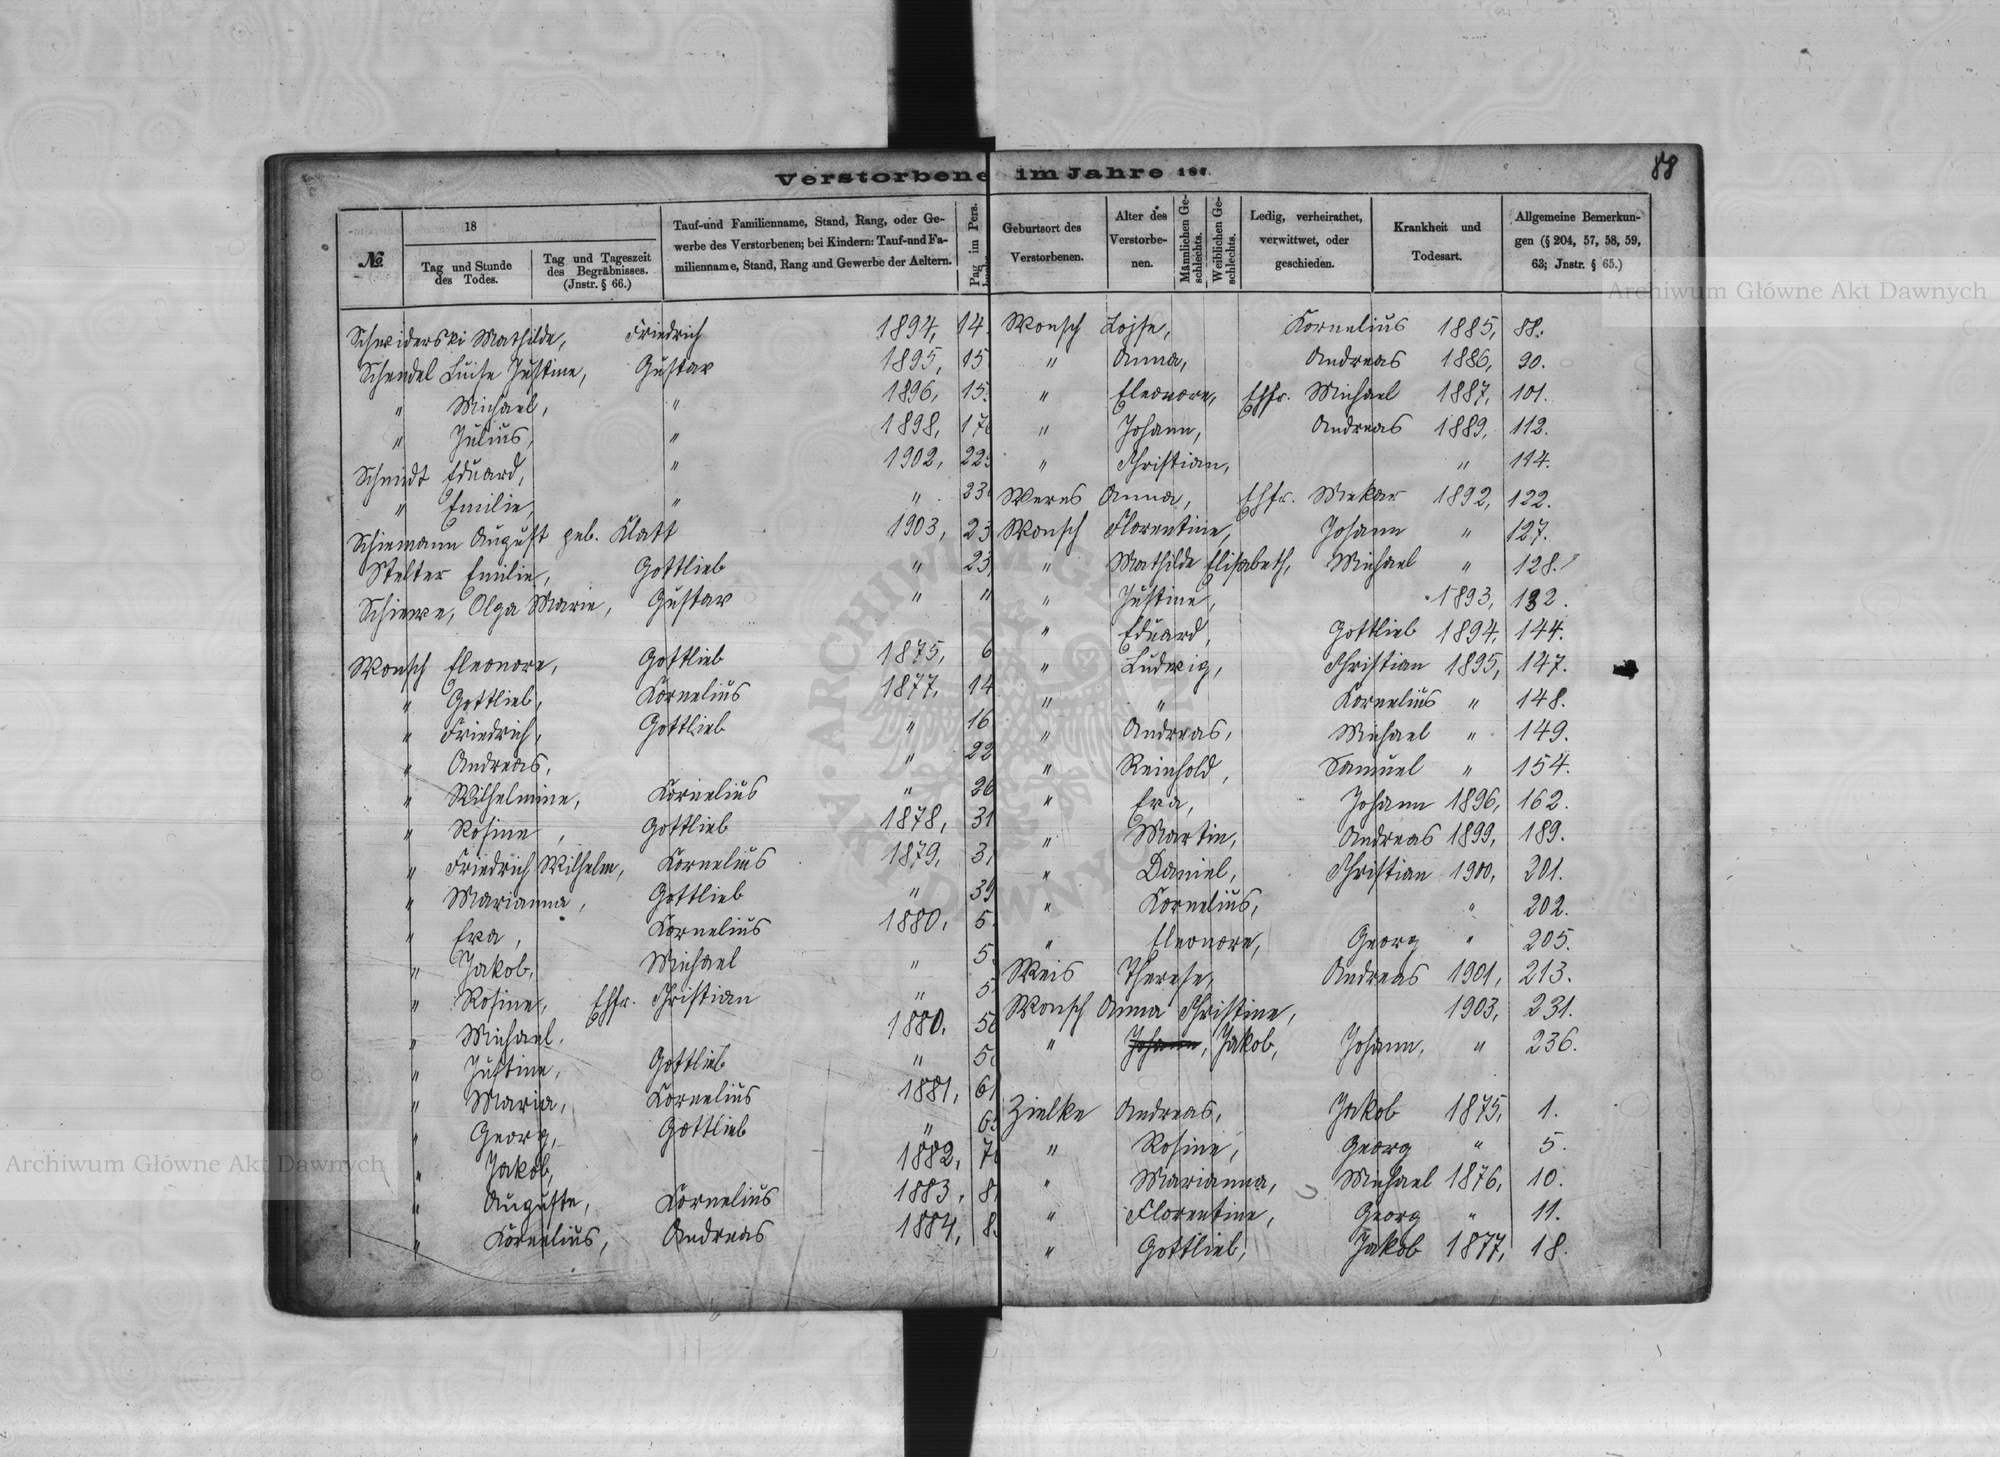 Verstorbene im Jahre 18
88
№
18
Tag und Stunde des Todes.
Tag und Tageszeit des Begräbnisses. (Jnstr. § 66.)
Tauf-und Familienname, Stand, Rang, oder Ge-
werbe des Verstorbenen; bei Kindern: Tauf-nnd Fa-
milienname, Stand, Rang und Gewerbe der Aeltern.
Pag im Pers.
Schwiderski Mathilde, Friedrich 1894, 14
Schendel Luise Justine, Gustav 1895, 15
" Michael, " 1896, 15
" Julius, " 1898, 17
Schmidt Eduard, " 1902, 22
" Emilie, " " 23
Schiemann August geb. Klatt 1903, 23
Stelter Emilie, Gottlieb " 23
Schiewe, Olga Marie, Gustav " "
Wonsch Eleonore, Gottlieb 1875, 6
" Gottlieb, Kornelius 1877, 14
" Friedrich, Gottlieb " 16
" Andreas, " 22
" Wilhelmine, Kornelius " 26
" Rosine, Gottlieb 1878, 31
" Friedrich Wilhelm, Kornelius 1879, 3
" Marianna, Gottlieb " 39
" Eva, Kornelius 1880, 5
" Jakob, Michael " 5
" Rosine, Ehfr. Christian " 5
" Michael, 1880, 50
" Justine, Gottlieb " 5
" Maria, Kornelius 1881, 61
" Georg, Gottlieb " 6
" Jakob, 1882, 7
" Auguste, Kornelius 1883, 8
" Kornelius, Andreas 1884, 8
Geburtsort des Verstorbenen.
Alter des Verstorbe-nen.
Männlichen Ge-schlechts.
Weiblichen Ge-schlechts.
Ledig, verheirathet, verwittwet, oder geschieden.
Krankheit und Todesart.
Allgemeine Bemerkun-
gen (§ 204, 57, 58, 59,
63; Jnstr. § 65.)
Wonsch Lojse, Kornelius 1885, 88.
" Anna, Andreas 1886, 90.
" Eleonore, Ehfr. Michael 1887, 101.
" Johann, Andreas 1889, 112.
" Christian, " 114.
Werns Anna, Ehfr. Mekar 1892, 122.
Wonsch Florentine, Johann " 127.
" Mathilde Elisabeth, Michael " 128.
" Justine, 1893, 132.
" Eduard, Gottlieb 1894, 144.
" Ludwig, Christian 1895, 147.
" " Kornelius " 148.
" Andreas, Michael " 149.
" Reinhold, Samuel " 154.
" Eva, Johann 1896, 162.
" Martin, Andreas 1899, 189.
" Daniel, Christian 1900, 201.
" Kornelius, " 202.
" Eleonore, Georg " 205.
Weis Therese, Andreas 1901, 213.
Wonsch Anna Christine, 1903, 231.
" Johann, Jakob, Johann, " 236.
Zielke Andreas, Jakob 1875, 1.
" Rosine, Georg " 5.
" Marianna, Michael 1876, 10.
" Florentine, Georg " 11.
" Gottlieb, Jakob 1877, 18.
Archiwum Główne Akt Dawnych
Archiwum Główne Akt Dawnych